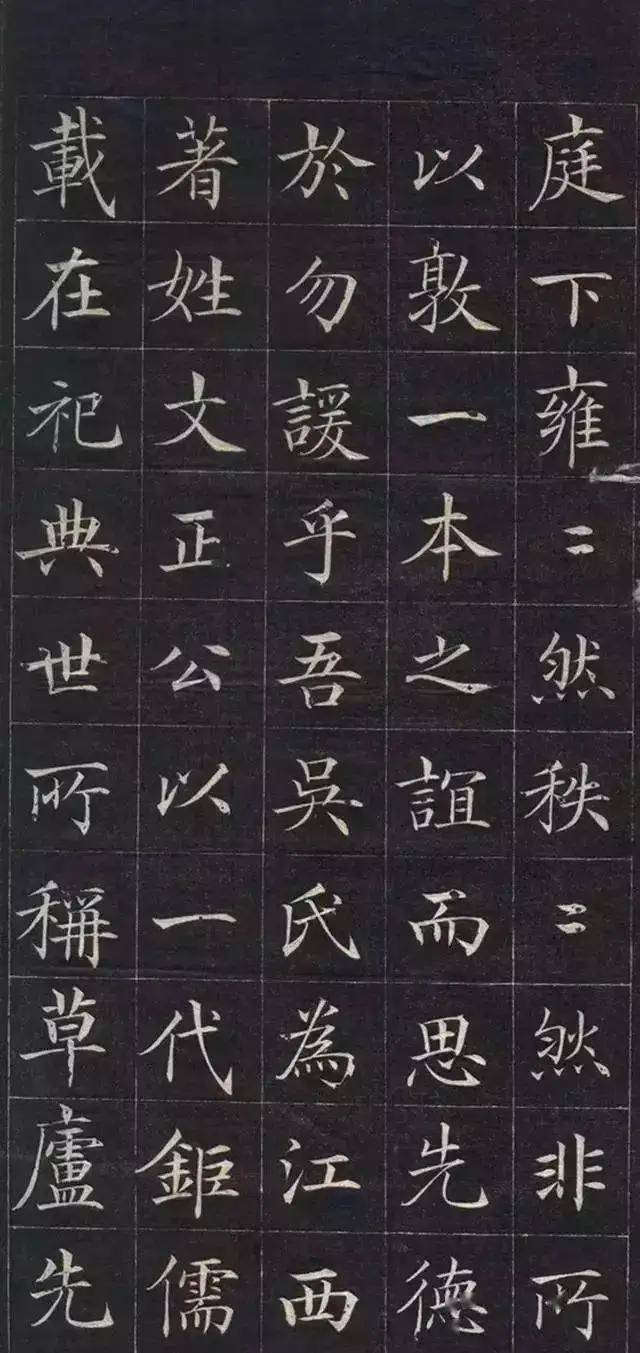 庭下雍〻然秩〻然非所
以敦一本之誼而思先德
於勿諼乎吾吳氏為江西
著姓文正公以一代鉅儒
載在祀典世所稱草廬先